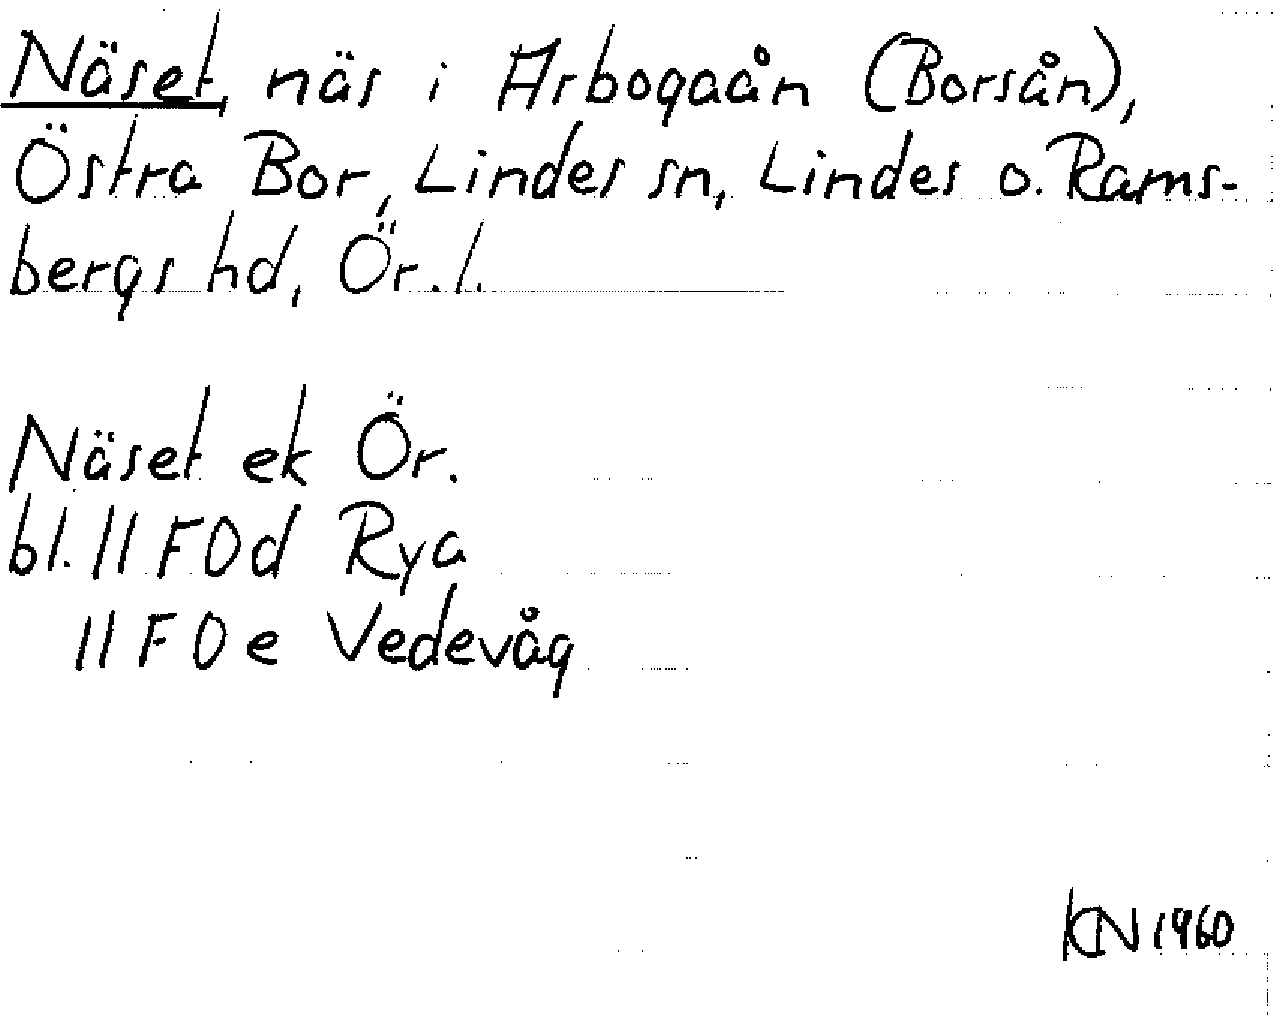 Näset, näs i Arbogaån (Borsån),
Östra Bor, Lindes sn, Lindes o. Rams-
bergs hd, Ör. l.
Näset ek Ör.
bl. 11 F 0 d Rya
11 F 0 e Vedevåg
KN 1960